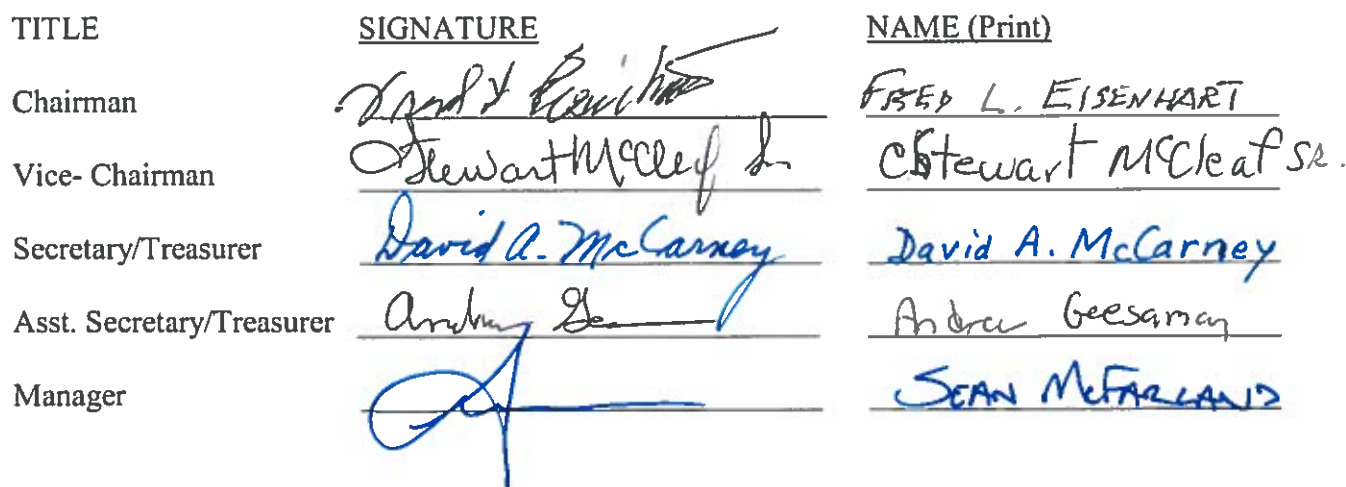 TITLE SIGNATURE NAME (Print)
Chairman FRED L. EISENHART
Vice- Chairman Stewart McCleaf Sr. C Stewart McCleaf SR.
Secretary/Treasurer David A. McCarney David A. McCarney
Asst. Secretary/Treasurer Andrew Geesaman
Manager SEAN MCFARLAND